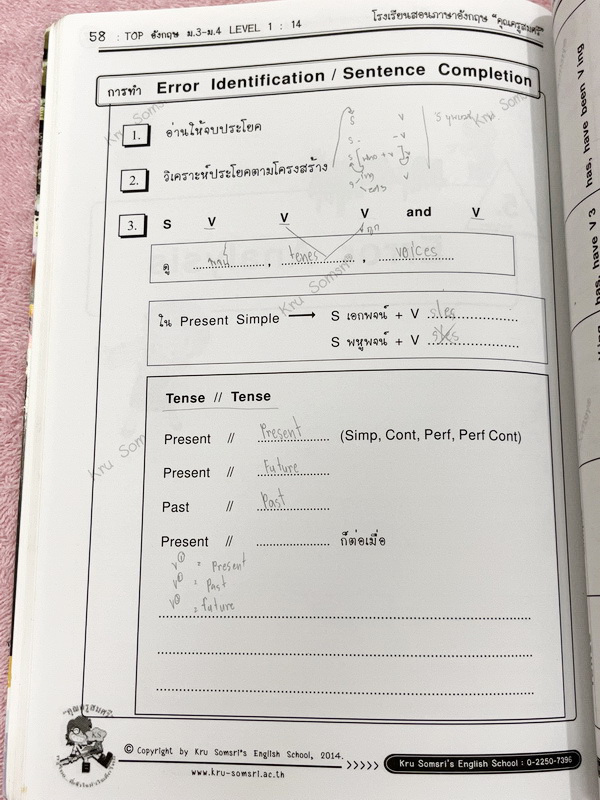 58 : TOP อังกฤษ ม.3-ม.4 LEVEL 1 : 14
โรงเรียนสอนภาษาอังกฤษ "คุณครูสมศรี"
การทำ Error Identification / Sentence Completion
1. อ่านให้จบประโยค
2. วิเคราะห์ประโยคตามโครงสร้าง
3. S V V V and V
ดู พจน์ , tenes , voices
ใน Present Simple → S เอกพจน์ + V s/es
S พหูพจน์ + V s/es
Tense // Tense
Present // Present (Simp, Cont, Perf, Perf Cont)
Present // Future
Past // Past
Present // ก็ต่อเมื่อ
V① = Present
V② = Past
V③ = future
© Copyright by Kru Somsri's English School, 2014.
www.kru-somsri.ac.th
Kru Somsri's English School : 0-2250-7396
"คุณครูสมศรี"
Kru Somsri
Kru Somsri
Kru Somsri
has, have been V ing
has, have V 3